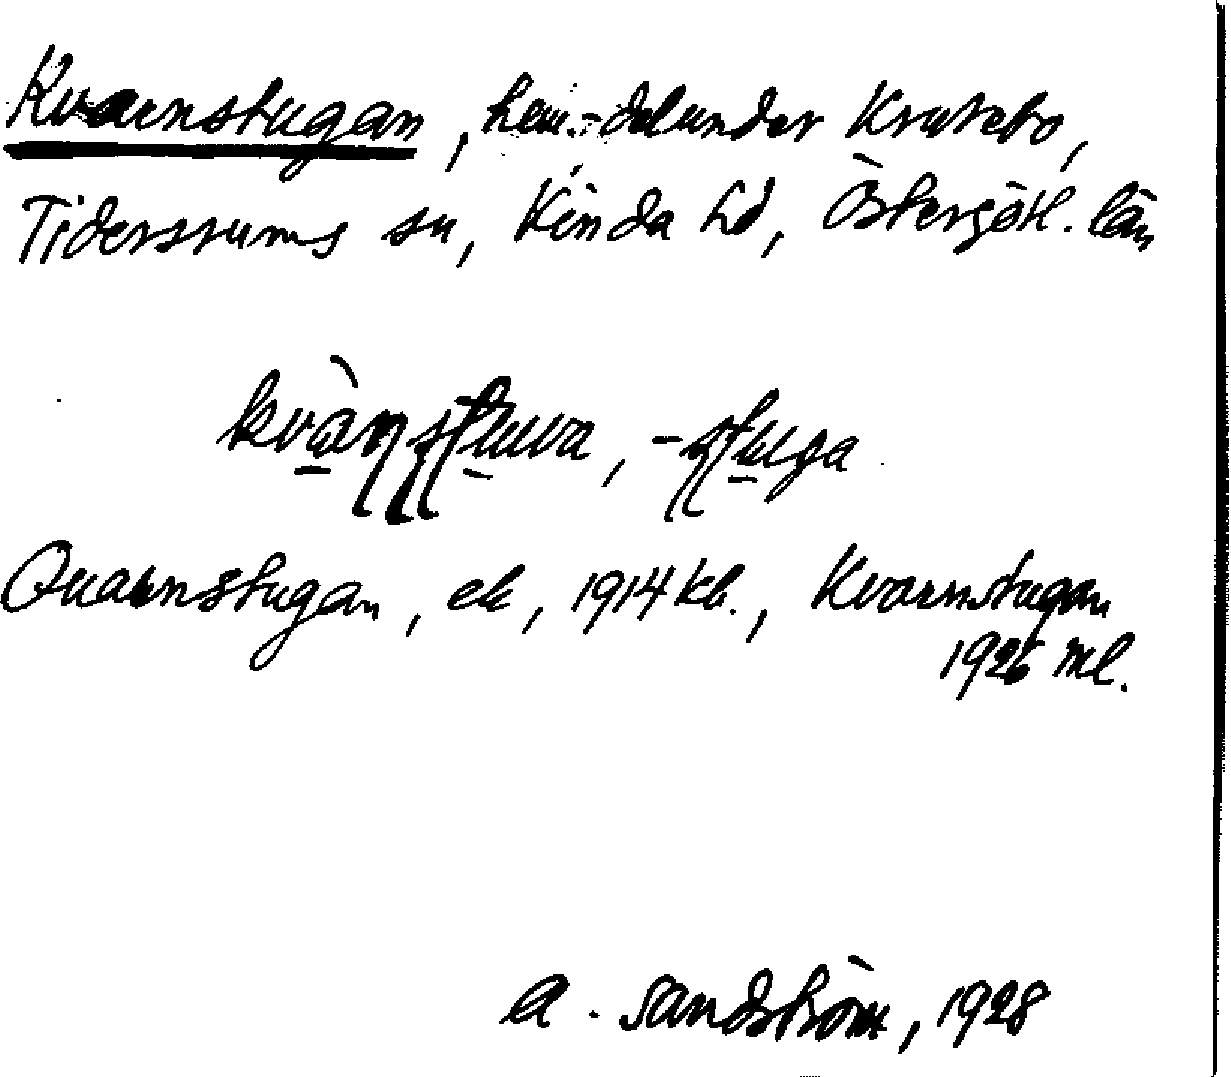 Kvarnstugan, hem.-del under Kratebo,
Tidersrums sn, Kinda hd, Östergötl. län
kvànstuva, -stuga
Quarnstugan, ek, 1914 kb., Kvarnstugan
1926 ml.
A. Sandström, 1928